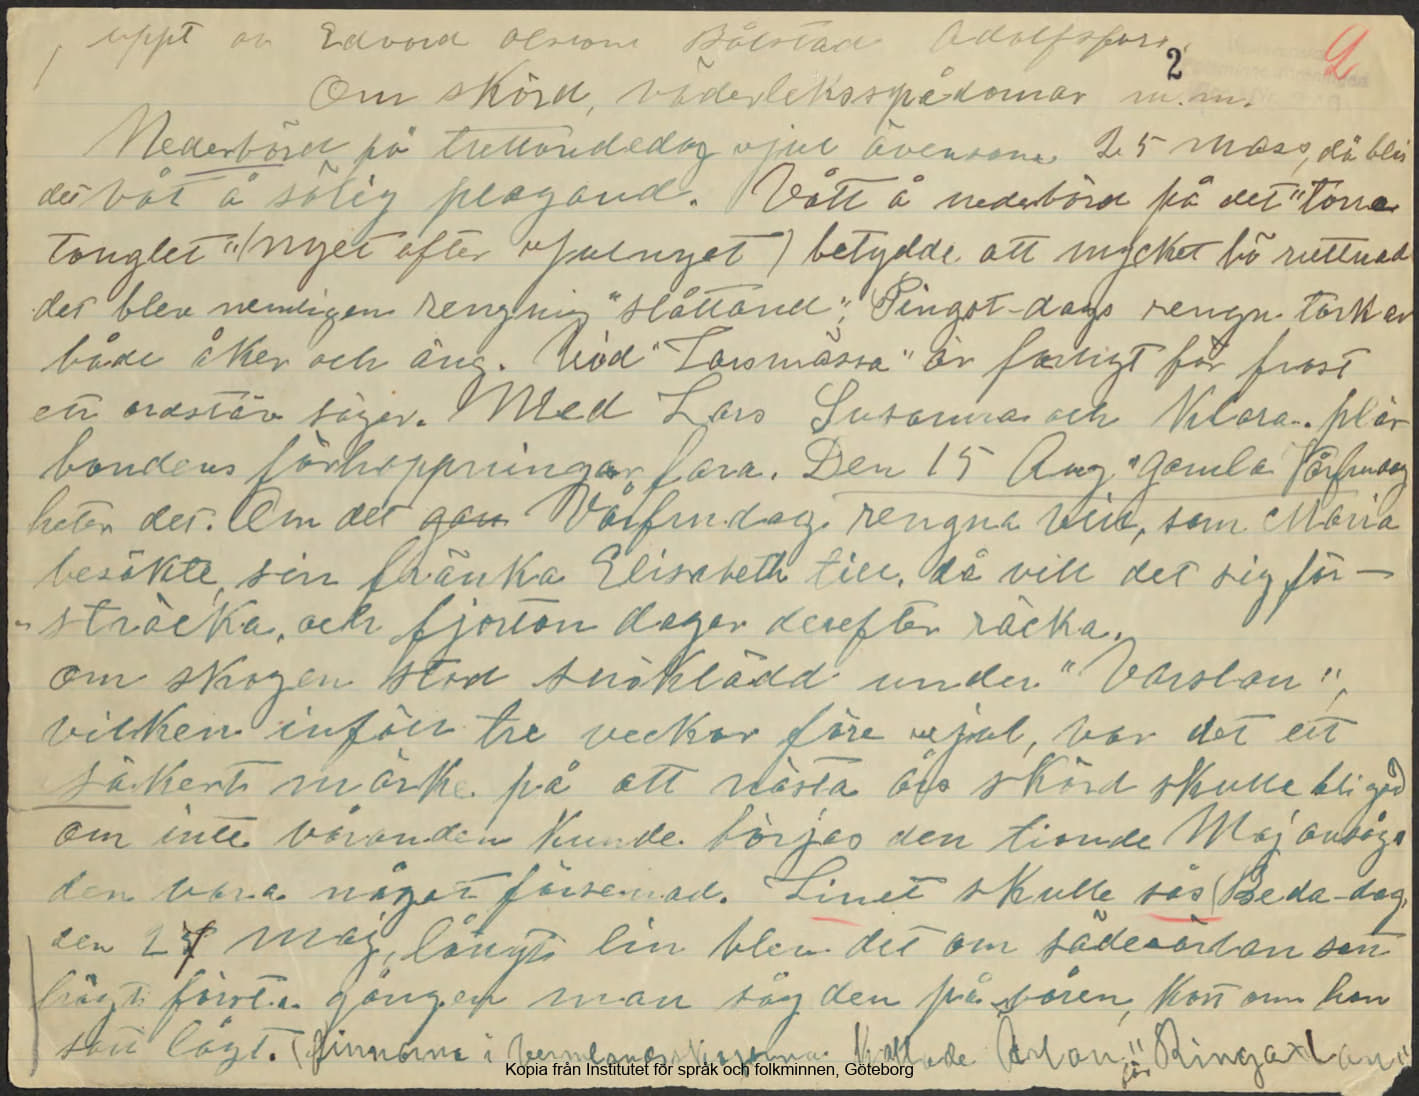 uppt av Edvard Olsson Bålstad Adolfsfors.
2
2
Om skörd, väderleksspådomar m.m.
Nederbörd på trettondedag jul ävensom 25 Mars, då blir
det våt å sölig plogand. Vått å nederbörd på det "torra
tonglet" (nyet efter Julnyet) betydde att mycket hö ruttnad
det blev nemligen rengnig "slåttand", Pingst-dags rengn torkar
både åker och äng. Vid "Larsmässa" är farligt för frost
ett ordstäv säger. Med Lars Susanna och Klara. plär
bondens förhoppningar fara. Den 15 Aug "gamla Vårfrudag
heter det. Om det Vårfrudag rengna vill, som Maria
besökte sin fränka Elisabeth till, då vill det sig för-
sträcka, och fjorton dagar derefter räcka.
om skogen stod snöklädd under "Varslan",
vilken inföll tre veckor före jul, var det ett
säkert märke på att nästa års skörd skulle bli god
om inte våranden kunde börjas den tionde Maj ansågs
den vara något försenad. Linet skulle sås (Beda-dag,
den 27 maj, långt lin blev det om sädesärlan satt
högt första gången man såg den på våren, kort om hon
satt lågt. (finnarna i kallade Ärlan för "Ringa
Kopia från Institutet för språk och folkminnen, Göteborg